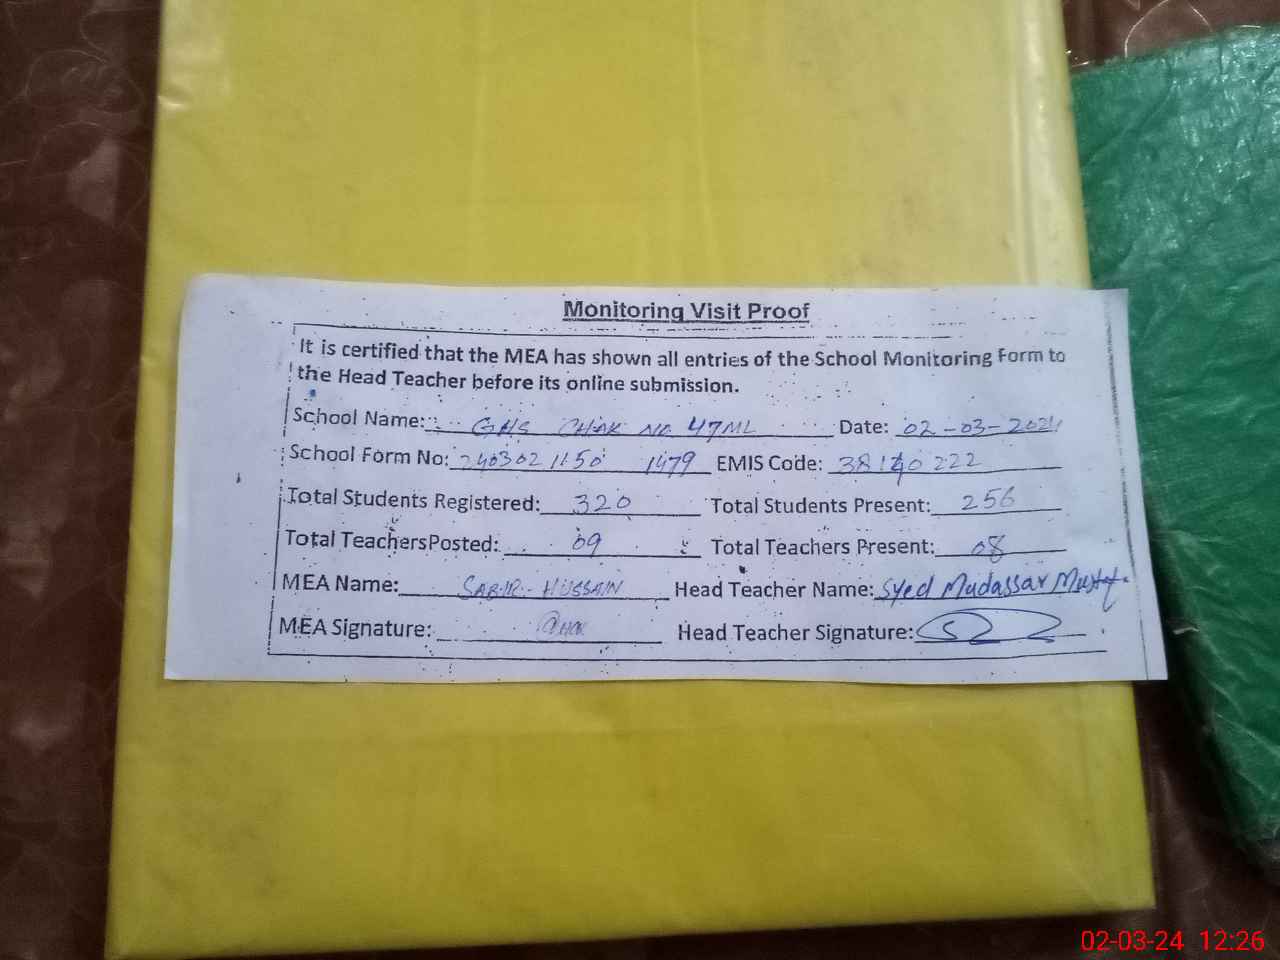 Monitoring Visit Proof
It is certified that the MEA has shown all entries of the School Monitoring Form to
the Head Teacher before its online submission.
School Name: GHS CHAK NO 47ML Date: 02-03-2024
School Form No: 2403021150 1479 EMIS Code: 38140222
Total Students Registered: 320 Total Students Present: 256
Total TeachersPosted: 09 Total Teachers Present: 08
MEA Name: SABIR HUSSAIN Head Teacher Name: Syed Mudassar
MEA Signature: Head Teacher Signature:
02-03-24 12:26